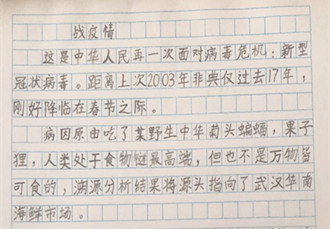 战疫情
这是中华人民再一次面对病毒危机:新型
冠状病毒。距离上次2003年非典仅过去17年,
刚好降临在春节之际。
病因原由吃了某野生中华菊头蝙蝠,果子
狸,人类处于食物链最高端,但也不是万物皆
可食的,溯源分析结果将源头指向了武汉华南
海鲜市场。